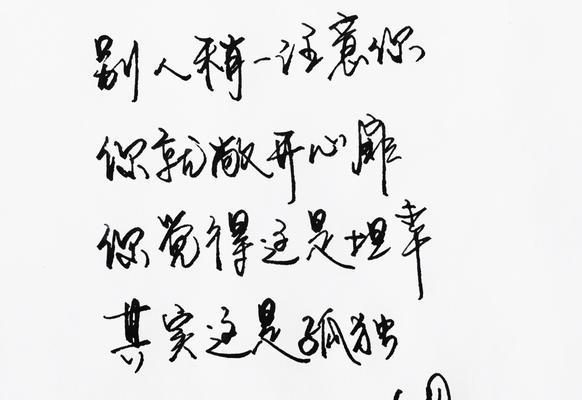 别人稍一注意你
你就敞开心扉
你觉得这是坦率
其实这是孤独